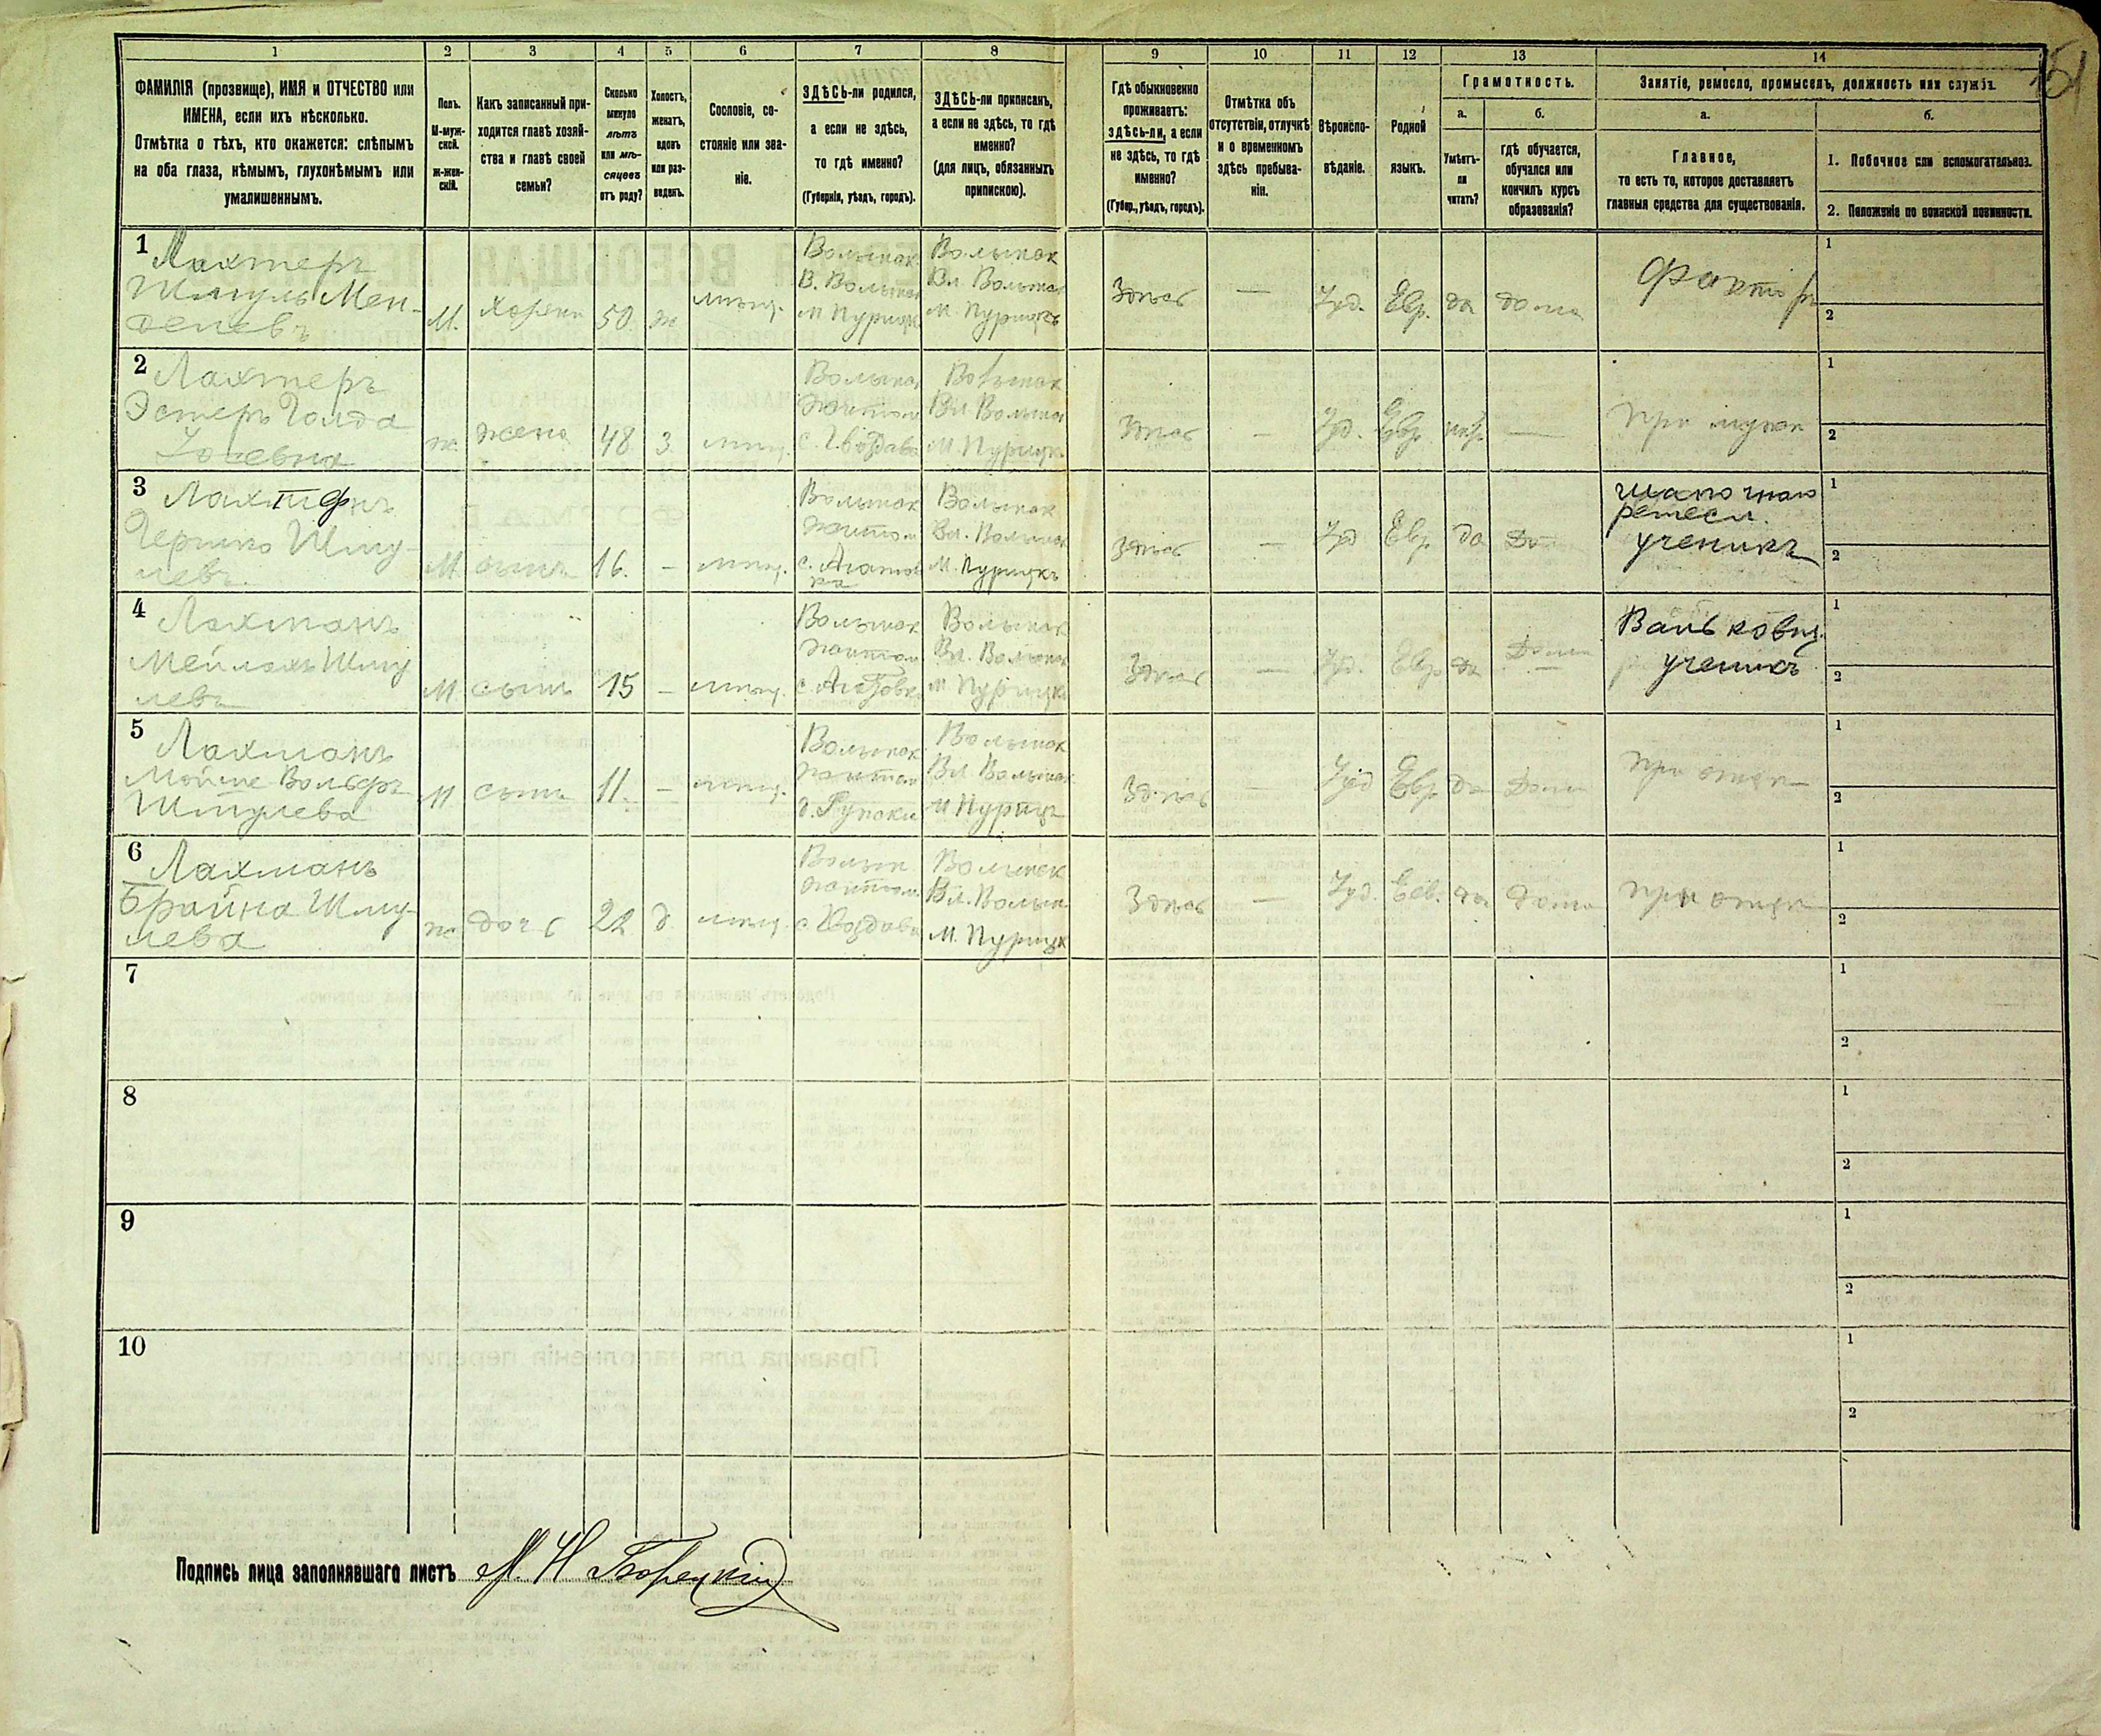 1 2 3 4 5 6 7 8 9 10 11 12 13 14
ФАМИЛІЯ (прозвище), ИМЯ и ОТЧЕСТВО или
ИМЕНА, если ихъ нѣсколько.
Отмѣтка о тѣхъ, кто окажется: слѣпымъ
на оба глаза, нѣмымъ, глухонѣмымъ или
умалишеннымъ.
Полъ.
М-муж-
ской.
ж-жен-
скій.
Какъ записанный при-
ходится главѣ хозяй-
ства и главѣ своей
семьи?
Сколько
минуло
лѣтъ
или мѣ-
сяцевъ
отъ роду?
Холостъ,
женатъ,
вдовъ
или раз-
веденъ.
Сословіе, со-
стояніе или зва-
ніе.
ЗДѢСЬ-ли родился,
а если не здѣсь,
то гдѣ именно?
(Губернія, уѣздъ, городъ).
ЗДѢСЬ-ли приписанъ,
а если не здѣсь, то гдѣ
именно?
(для лицъ, обязанныхъ
припискою).
Гдѣ обыкновенно
проживаетъ:
здѣсь-ли, а если
не здѣсь, то гдѣ
именно?
(Губер., уѣздъ, городъ).
Отмѣтка объ
отсутствіи, отлучкѣ
и о временномъ
здѣсь пребыва-
ніи.
Вѣроиспо-
вѣданіе.
Родной
языкъ.
Грамотность.
а.
Умѣетъ-
ли
читать?
б.
гдѣ обучается,
обучался или
кончилъ курсъ
образованія?
Занятіе, ремесло, промыселъ, должность или служба.
а.
Главное,
то есть то, которое доставляетъ
главныя средства для существованія.
б.
1. Побочное или вспомогательное.
2. Положеніе по воинской повинности.
1 Лахтеръ
Шмуль Мен-
делевъ
М. хозяин 50 ж мѣщ.
Волынск
В. Волынск
м Пурицк
Волынск
Вл Волынск
м. Пурицкъ
Здѣсь — Іуд. Евр. да дома
Факторъ
1
2
2 Лахтеръ
Эстеръ Голда
Іосевна
ж. жена 48 З мѣщ.
Волынск
Житом
Волынск
Вл Волынск
М. Пурицк
Здѣсь — Іуд. Евр. —
При мужѣ
1
2
3
Гершко Шму-
левъ
М сынъ 16. — мѣщ.
Волынск
Житом
Волынск
Вл. Волынск
М. Пурицкъ
Здѣсь — Іуд Евр да До
ремесл.
ученикъ
1
2
4 Лахманъ
Мейлахъ Шму
левъ
М сынъ 15 — мѣщ.
Волынск
Житом
Волынск
Вл. Волынск
м Пурицк
Здѣсь — Іуд. Евр да Дома
ученикъ
1
2
5 Лахманъ
Мойше Вольфъ
Шмулева
М сынъ 11. — мѣщ.
Волынск
Житом
Волынск
Вл. Волынск
М Пурицк
Здѣсь Іуд Евр да Дома
При отцѣ
1
2
6 Лахманъ
Брайна Шму-
лева
ж дочь 22 д мѣщ.
Волын
Житом
Волынск
Вл. Волын
М. Пурицк
Здѣсь — Іуд. Евр. да дома
При отцѣ
1
2
7
1
2
8
1
2
9
1
2
10
1
2
Подпись лица заполнявшаго листъ